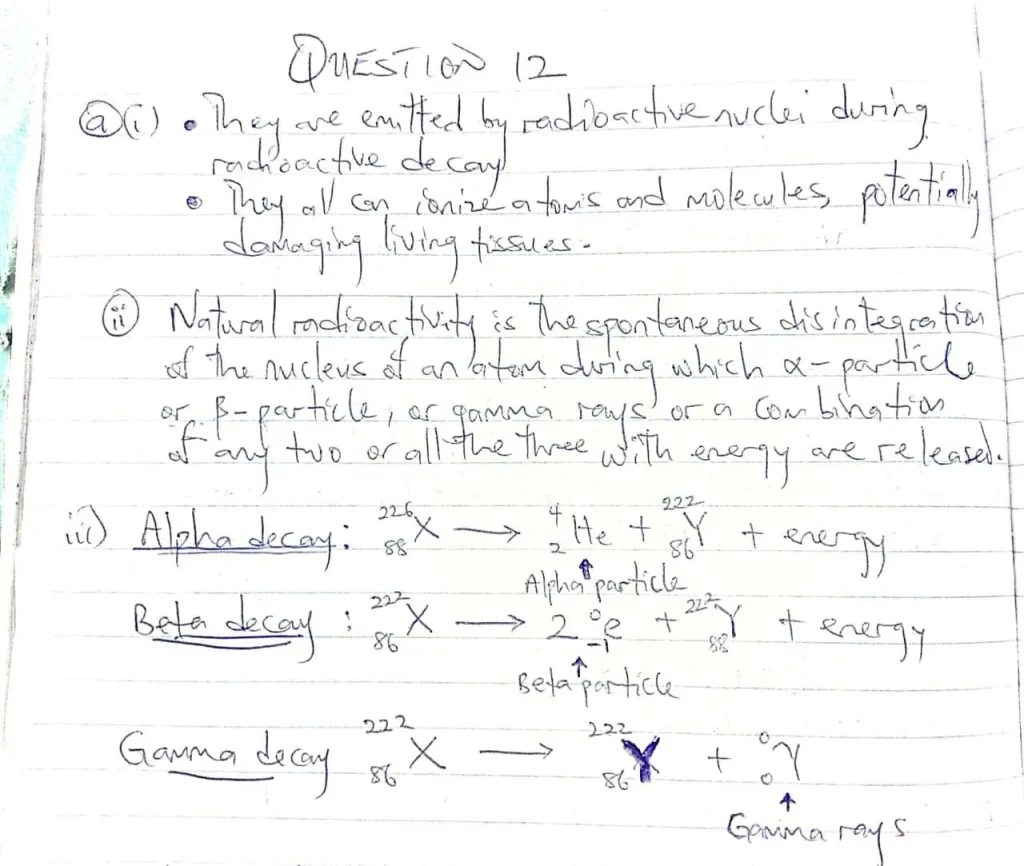 QUESTION 12
a (i) • They are emitted by radioactive nuclei during
radioactive decay
• They all can ionize atoms and molecules, potentially
damaging living tissues.
ii Natural radioactivity is the spontaneous disintegration
of the nucleus of an atom during which α-particle
or β-particle, or gamma rays or a combination
of any two or all the three with energy are released.
iii) Alpha decay: ²²⁶₈₈X → ⁴₂He + ²²²₈₆Y + energy
↑
Alpha particle
Beta decay: ²²²₈₆X → 2 ⁰₋₁e + ²²²₈₈Y + energy
↑
Beta particle
Gamma decay ²²²₈₆X → ²²²₈₆Y + ⁰₀γ
↑
Gamma rays